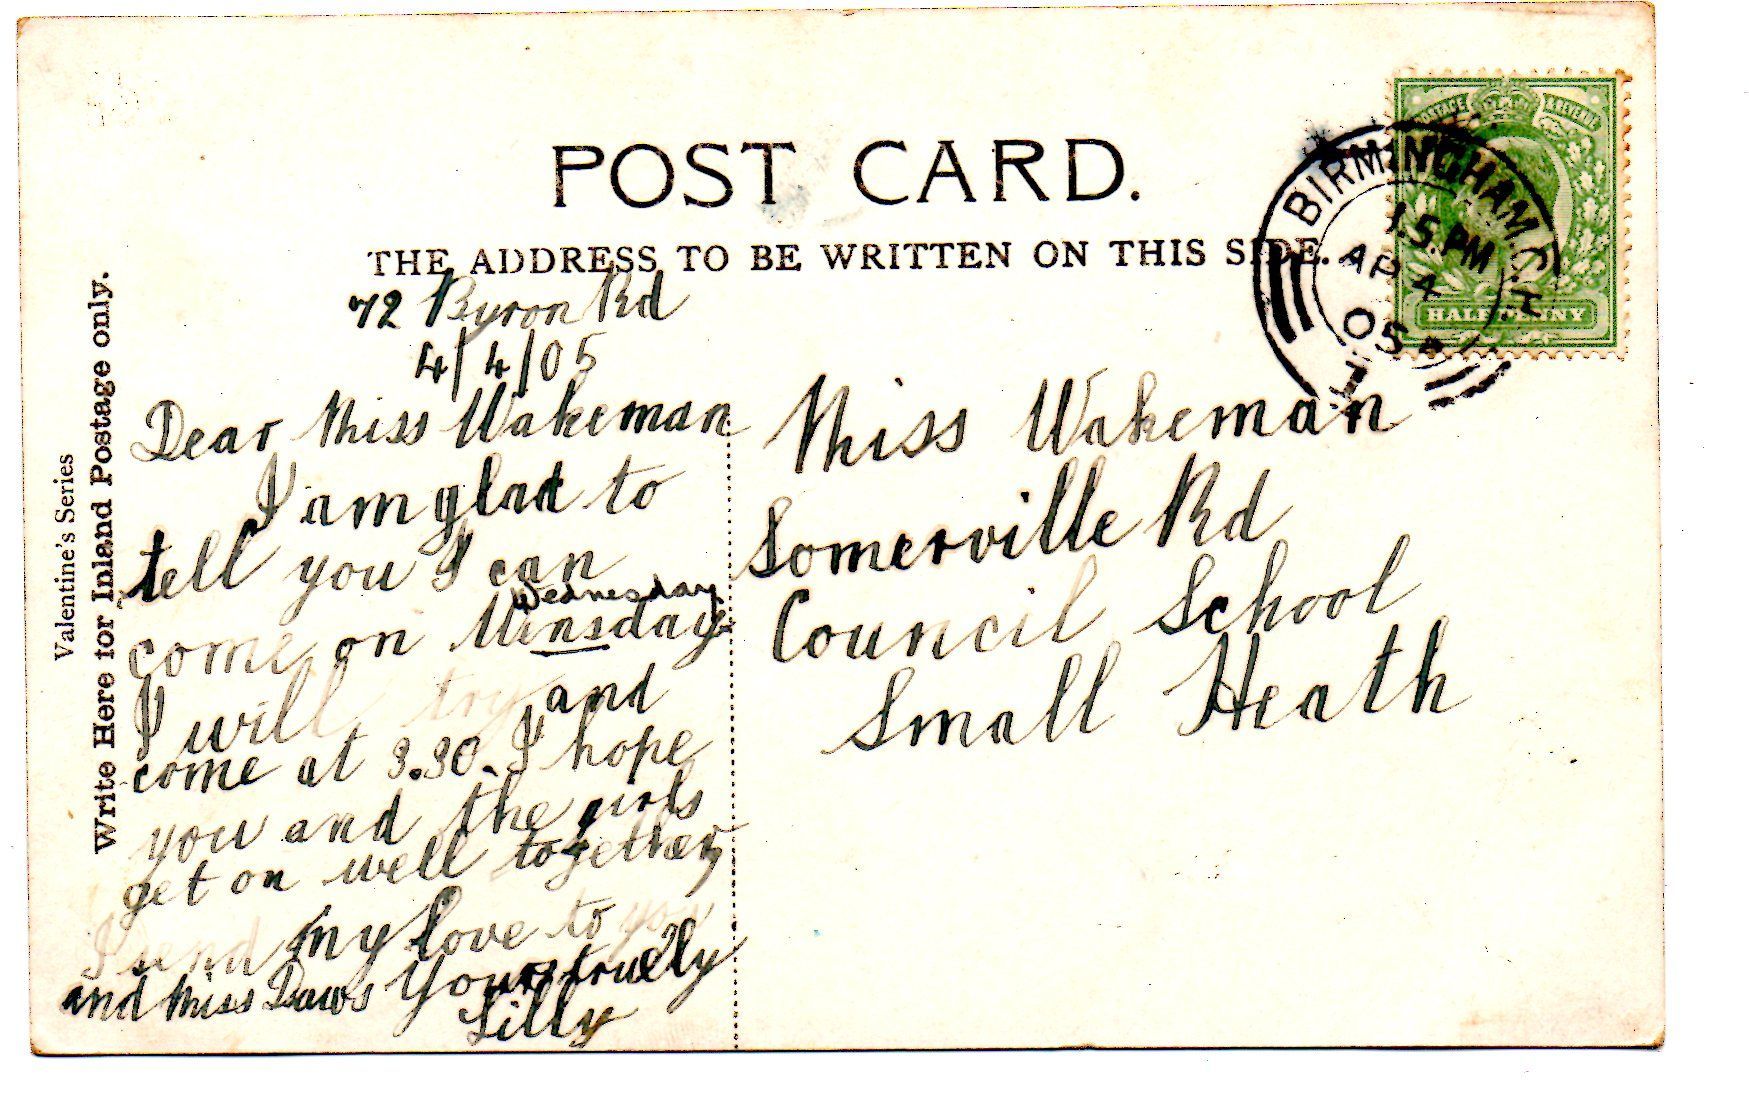 POST CARD.
THE ADDRESS TO BE WRITTEN ON THIS SIDE.
Valentine's Series
Write Here for Inland Postage only.
72 Byron Rd
4/4/05
Dear Miss Wakeman
I am glad to
tell you I can
Wednesday
come on Winsday
I will try and
come at 3.30. I hope
you and the girls
get on well together
I send my love to you
and Miss Daws Yours truelly
Lilly
Miss Wakeman
Somerville Rd
Council School
Small Heath
POSTAGE & REVENUE
HALFPENNY
BIRMINGHAM
5. PM
AP 4
05